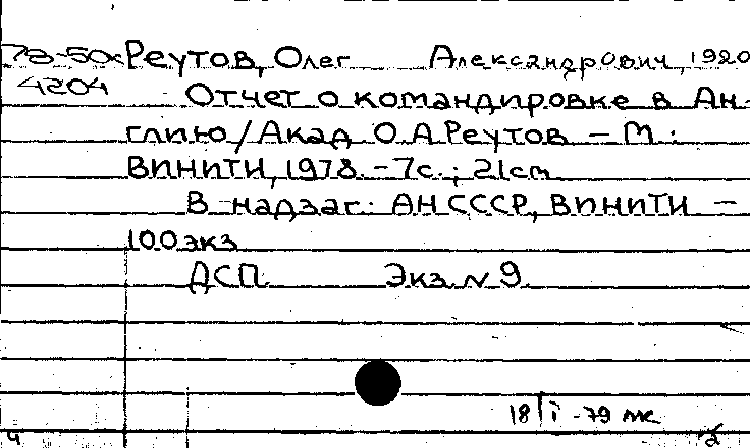 78-50x Реутов, Олег Александрович, 1920
4204 Отчет о командировке в Ан-
глию / Акад О.А.Реутов - М.:
ВИНИТИ, 1978. - 7с.; 21см
В надзаг: АН СССР, ВИНИТИ -
100экз
ДСП Экз. N 9
18/i -79